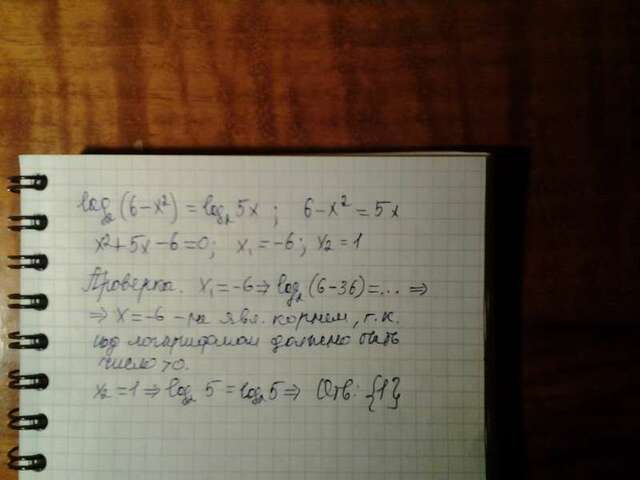 log₂(6-x²) = log₂5x ; 6-x² = 5x
x²+5x-6=0; x₁=-6; x₂=1
Проверка. x₁=-6⇒log₂(6-36)=...⇒
⇒ x=-6 -не явл. корнем, т.к.
под логарифмом должно быть
число >0.
x₂=1⇒log₂ 5 = log₂5⇒ Отв: {1}